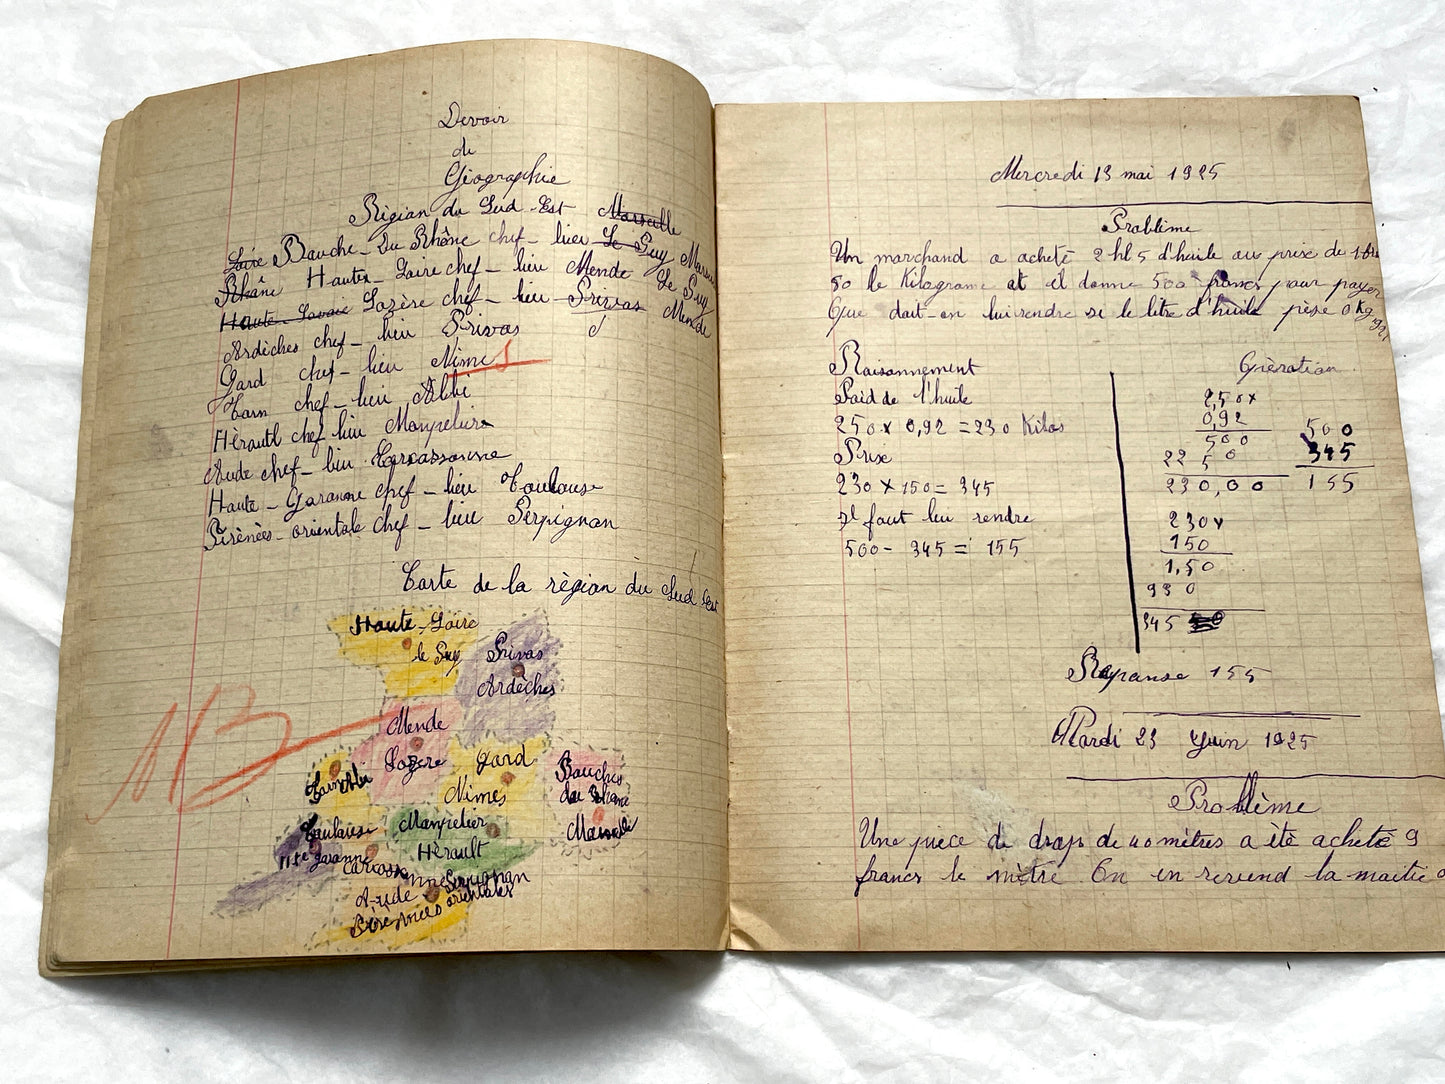 Devoir
de
Géographie
Région du Sud-Est Marseille
Loire Bouche-Du Rhône chef-lieu Le Puy
Rhône Haute-Loire chef-lieu Mende Le Puy
Haute-Savoie Lozère chef-lieu Privas Mende
Ardèches chef-lieu Privas
Gard chef-lieu Nimes
Tarn chef-lieu Albi
Hèrault chef-lieu Monpelier
Aude chef-lieu Carcassonne
Haute-Garonne chef-lieu Toulouse
Pirènèes-orientale chef-lieu Perpignan
Carte de la règion du Sud Est
Haute-Loire
le Puy
Privas
Ardèches
Mende
Lozère
Gard
Nîmes
Bouches
du Rhône
Marseille
Tarn Albi
Toulouse
Hte garonne
Monpelier
Hèrault
Carcassonne
Aude
Perpignan
orientales
Mercredi 13 mai 1925
Problème
Un marchand a acheté 2 hl 5 d'huile au prix de 1
50 le Kilograme et il donne 500 francs pour payer
Que doit-on lui rendre si le litre d'huile pèse 0 Kg 921
Raisonnement
Poid de l'huile
250 x 0,92 = 230 Kilos
Prix
230 x 150 = 345
Il faut lui rendre
500 - 345 = 155
Opèration
2,50x
0,92
500
22 5 0
230,00
500
345
155
230x
150
1,50
230
345
Reponse 155
Mardi 23 Juin 1925
Problème
Une pièce de drap de 40 mètres a ètè achetè 9
francs le mètre On en revend la moitié